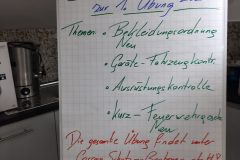 zur 1. Übung
Themen: • Bekleidungsordnung
Neu
• Geräte - Fahrzeugkontr.
• Ausrüstungskontrolle
• Kurz - Feuerwehr
Die gesamte Übung findet unter
Corona